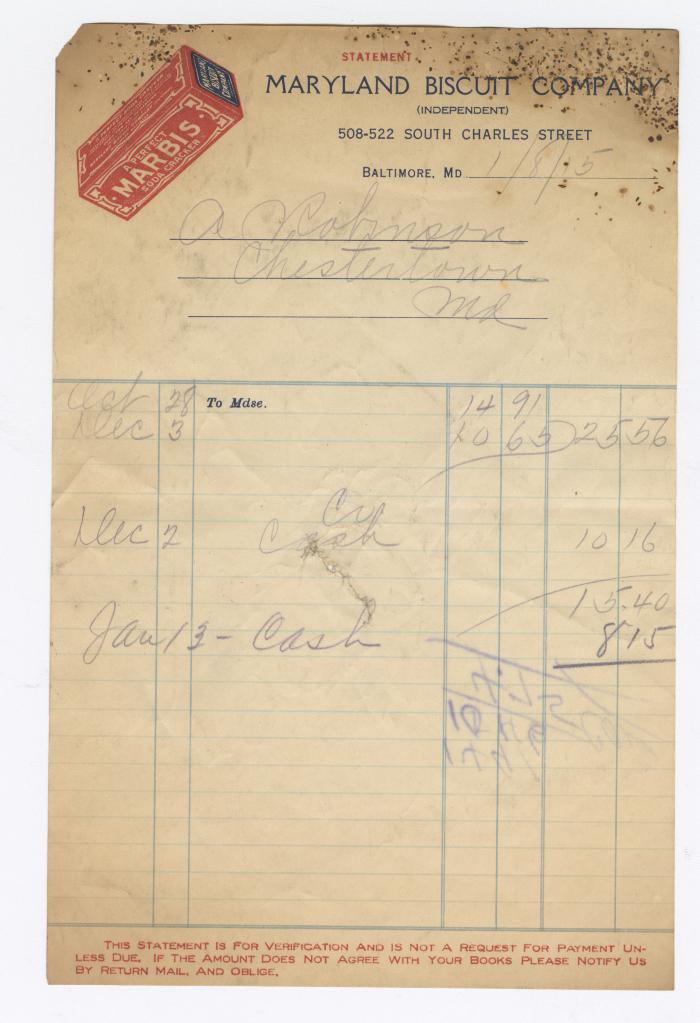 STATEMENT
MARYLAND BISCUIT COMPANY
(INDEPENDENT)
508-522 SOUTH CHARLES STREET
BALTIMORE, MD. 1/8/15
MARYLAND BISCUIT COMPANY
A PERFECT
MARBIS
SODA CRACKER
A Robinson
Chestertown
Md
Oct 28 To Mdse. 14 91
Dec 3 10 65 25 56
Cr
Dec 2 Cash 10 16
15.40
Jan 13 - Cash 8 15
THIS STATEMENT IS FOR VERIFICATION AND IS NOT A REQUEST FOR PAYMENT UN-
LESS DUE. IF THE AMOUNT DOES NOT AGREE WITH YOUR BOOKS PLEASE NOTIFY US
BY RETURN MAIL, AND OBLIGE.